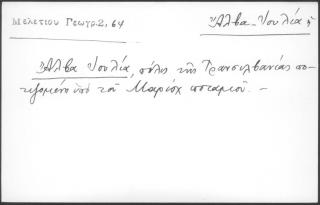 Μελετίου Γεωγρ. 2, 64
Ἄλβα Ἰουλία ἡ
Ἄλβα Ἰουλία, πόλις τῆς Τρανσιλβανίας πο-
τιζομένη ὑπὸ τοῦ Μαρίσχ ποταμοῦ. —